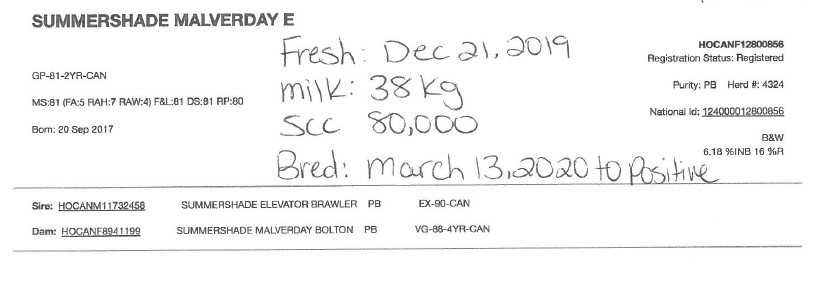 SUMMERSHADE MALVERDAY E
Fresh: Dec 21, 2019
HOCANF12800856
Registration Status: Registered
GP-81-2YR-CAN
milk: 38 kg
Purity: PB Herd #: 4324
MS:81 (FA:5 RAH:7 RAW:4) F&L:81 DS:81 RP:80
SCC 80,000
National Id: 124000012800856
Born: 20 Sep 2017
B&W
6.18 %INB 16 %R
Bred: March 13, 2020 to Positive
Sire: HOCANM11732458 SUMMERSHADE ELEVATOR BRAWLER PB EX-90-CAN
Dam: HOCANF8941199 SUMMERSHADE MALVERDAY BOLTON PB VG-88-4YR-CAN